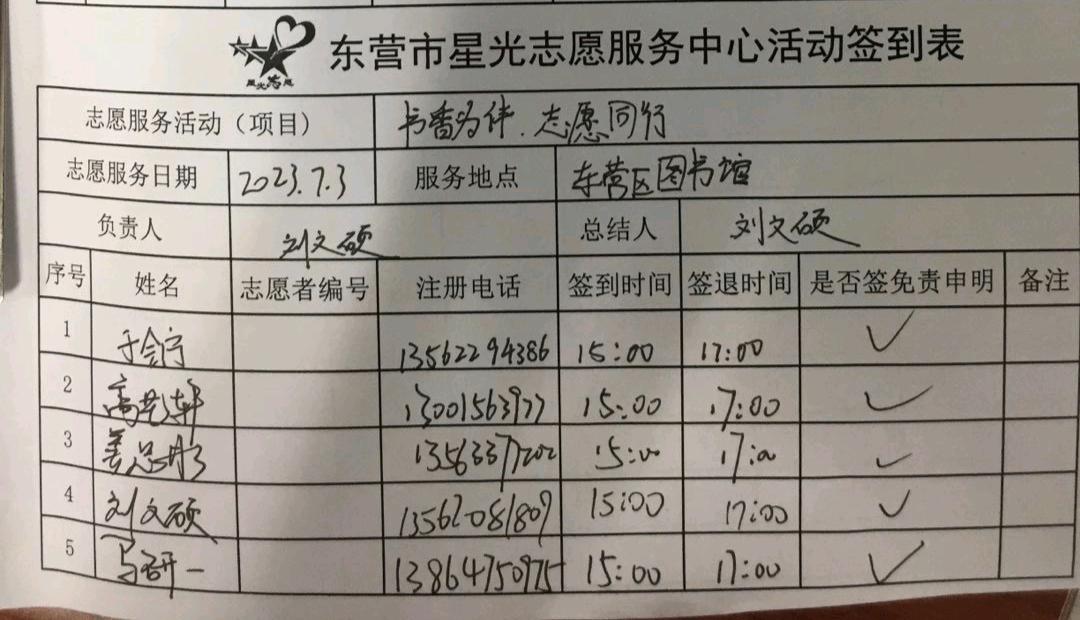 星光志愿
东营市星光志愿服务中心活动签到表
志愿服务活动（项目） 书香为伴.志愿同行
志愿服务日期 2023.7.3 服务地点 东营区图书馆
负责人 刘文硕 总结人 刘文硕
序号 姓名 志愿者编号 注册电话 签到时间 签退时间 是否签免责申明 备注
1 于会宁 13562294386 15:00 17:00 ✓
2 高艺轩 13001563977 15:00 17:00 ✓
3 姜 13563377202 15:00 17:00 ✓
4 刘文硕 13562081809 15:00 17:00 ✓
5 马研一 13864750975 15:00 17:00 ✓